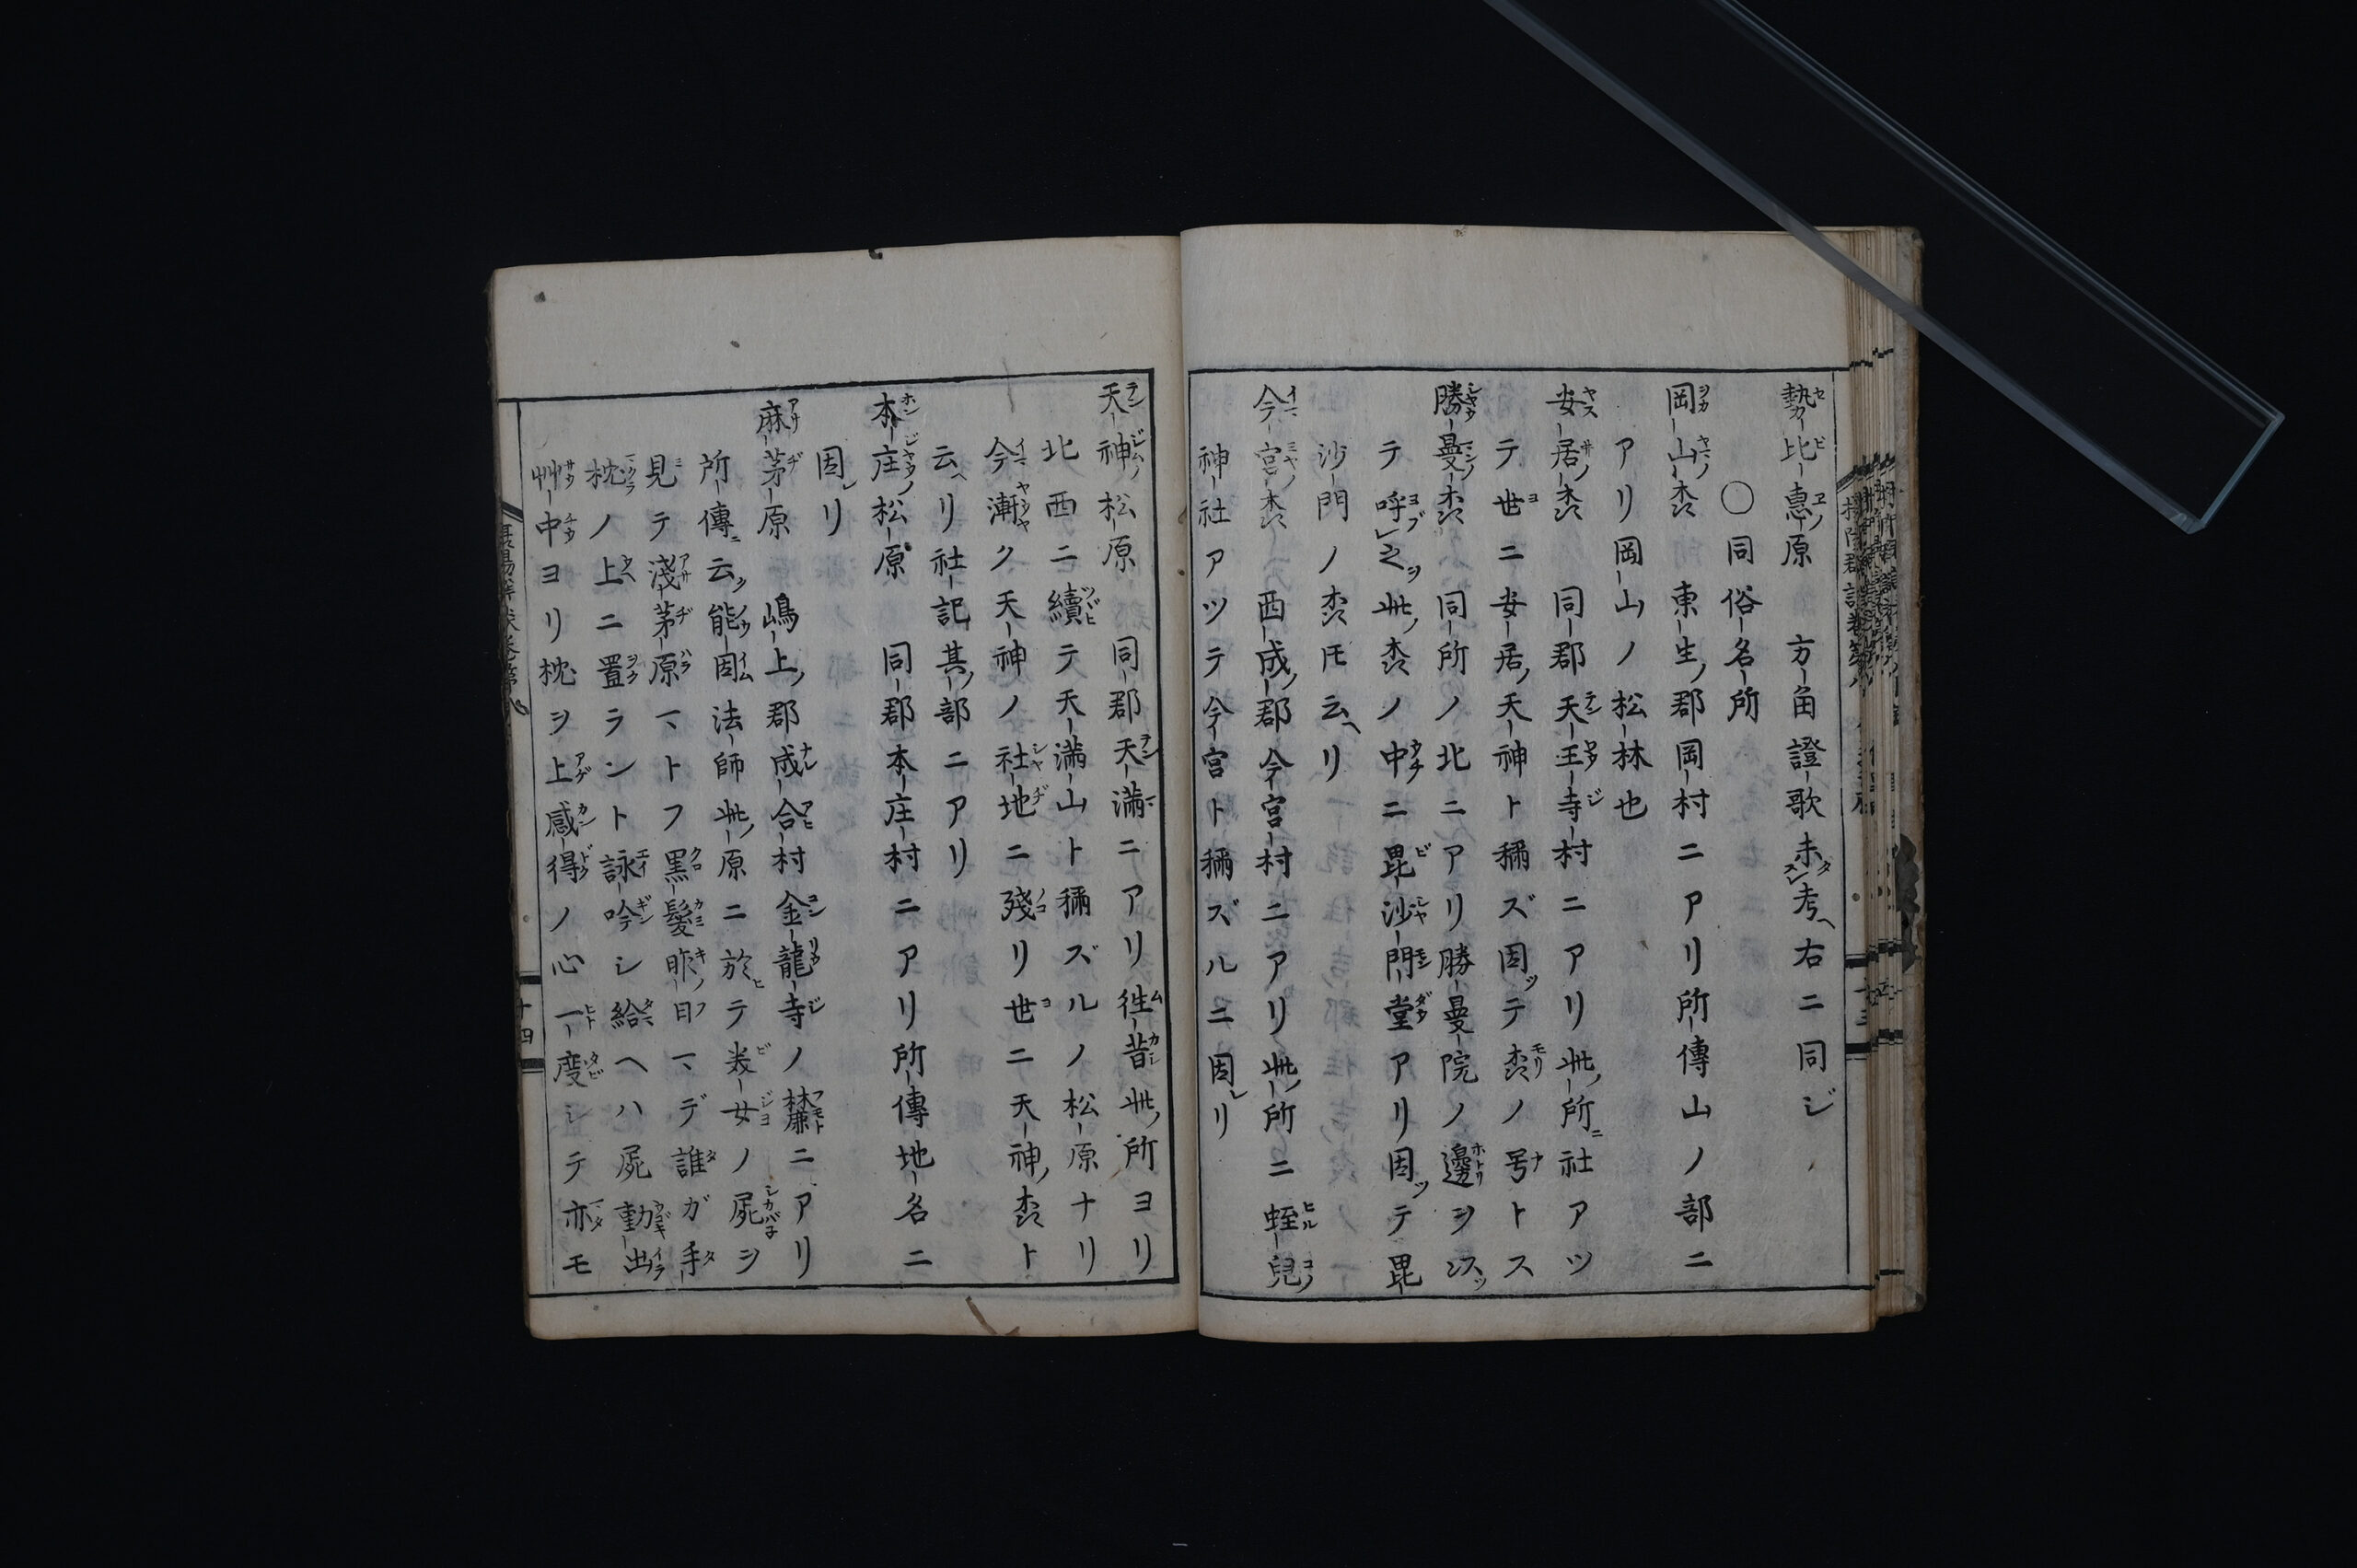 勢比惠原　方角證歌未考右ニ同ジ
〇同俗名所
岡山森　東生郡岡村ニアリ所傳山ノ部ニ
アリ岡山ノ松林也
安居森　同郡天王寺村ニアリ此所社アツ
テ世ニ安居天神ト稱ズ因テ森ノ号トス
勝曼森　同所ノ北ニアリ勝曼院ノ邊ヲ
テ呼之此森ノ中ニ毘沙門堂アリ因ッテ毘
沙門ノ森トモ云ヘリ
今宮森　西成郡今宮村ニアリ此所ニ蛭兒
神社アツテ今宮ト稱ズルニ因レリ
天神松原　同郡天満ニアリ徃昔此所ヨリ
北西ニ續テ天満山ト稱ズルノ松原ナリ
今漸ク天神ノ社地ニ殘リ世ニ天神森ト
云ヘリ社記其部ニアリ
本庄松原　同郡本庄村ニアリ所傳地名ニ
因レリ
麻茅原　嶋上郡成合村金龍寺ノ麓ニアリ
所傳云能因法師此原ニ於テ美女ノ屍ヲ
見テ淺茅原ヽトフ黒髪昨日ヽデ誰ガ手
枕ノ上ニ置ラント詠吟シ給ヘハ屍動出
艸中ヨリ枕ヲ上感得ノ心一度シテ亦モ
十四